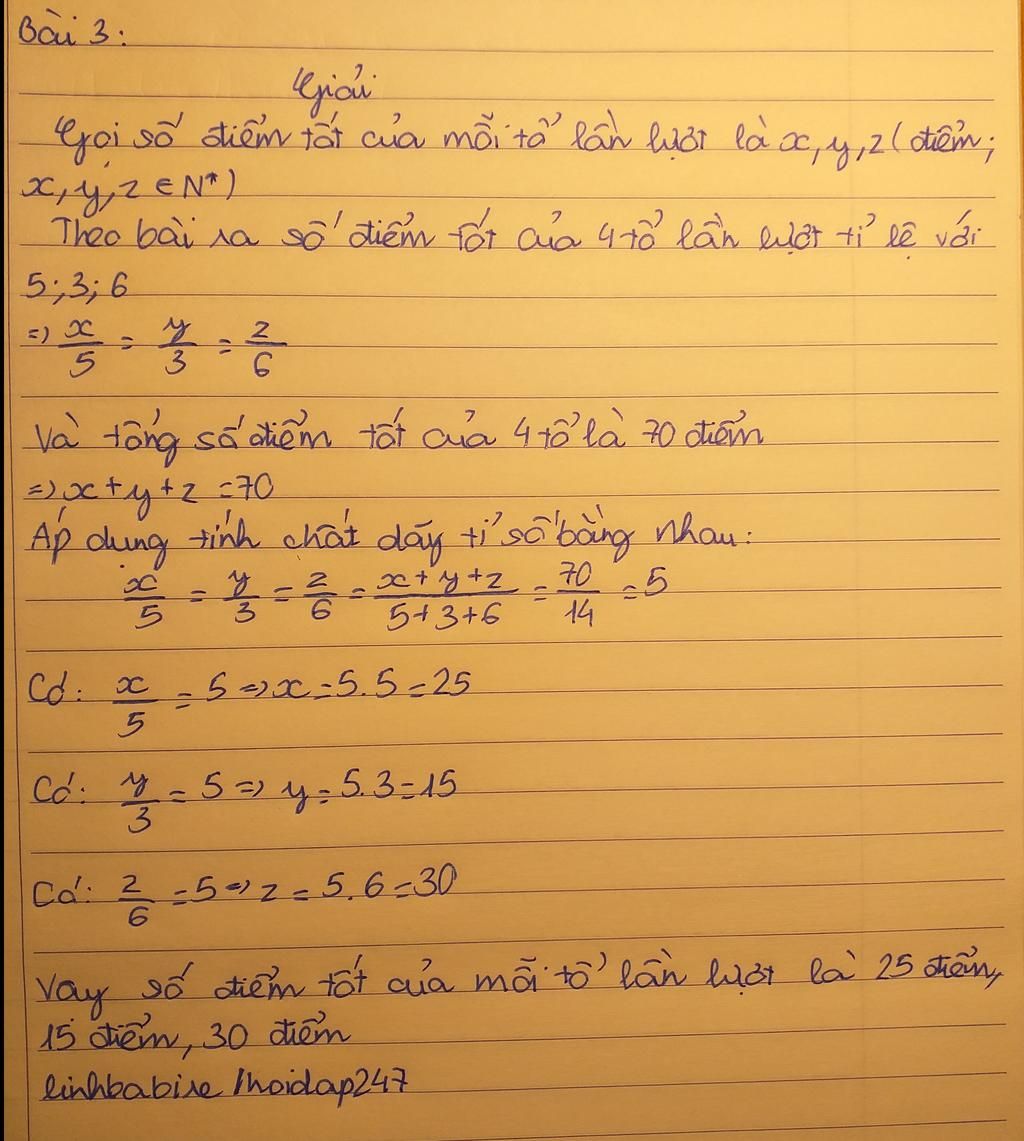 Bài 3:
Giải
Gọi số điểm tốt của mỗi tổ lần lượt là x, y, z (điểm;
x, y, z ∈ N*)
Theo bài ra số điểm tốt của 4 tổ lần lượt tỉ lệ với
5; 3; 6
=> x/5 = y/3 = z/6
Và tổng số điểm tốt của 4 tổ là 70 điểm
=> x + y + z = 70
Áp dụng tính chất dãy tỉ số bằng nhau:
x/5 = y/3 = z/6 = (x + y + z)/(5 + 3 + 6) = 70/14 = 5
Có: x/5 = 5 => x = 5.5 = 25
Có: y/3 = 5 => y = 5.3 = 15
Có: z/6 = 5 => z = 5.6 = 30
Vậy số điểm tốt của mỗi tổ lần lượt là 25 điểm,
15 điểm, 30 điểm
linhbabire /hoidap247